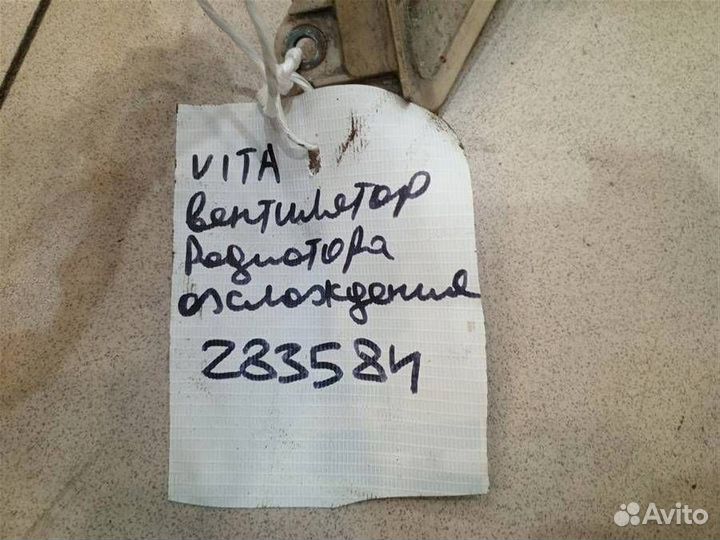 VITA
вентилятор
радиотора
охлождения
283584
Avito